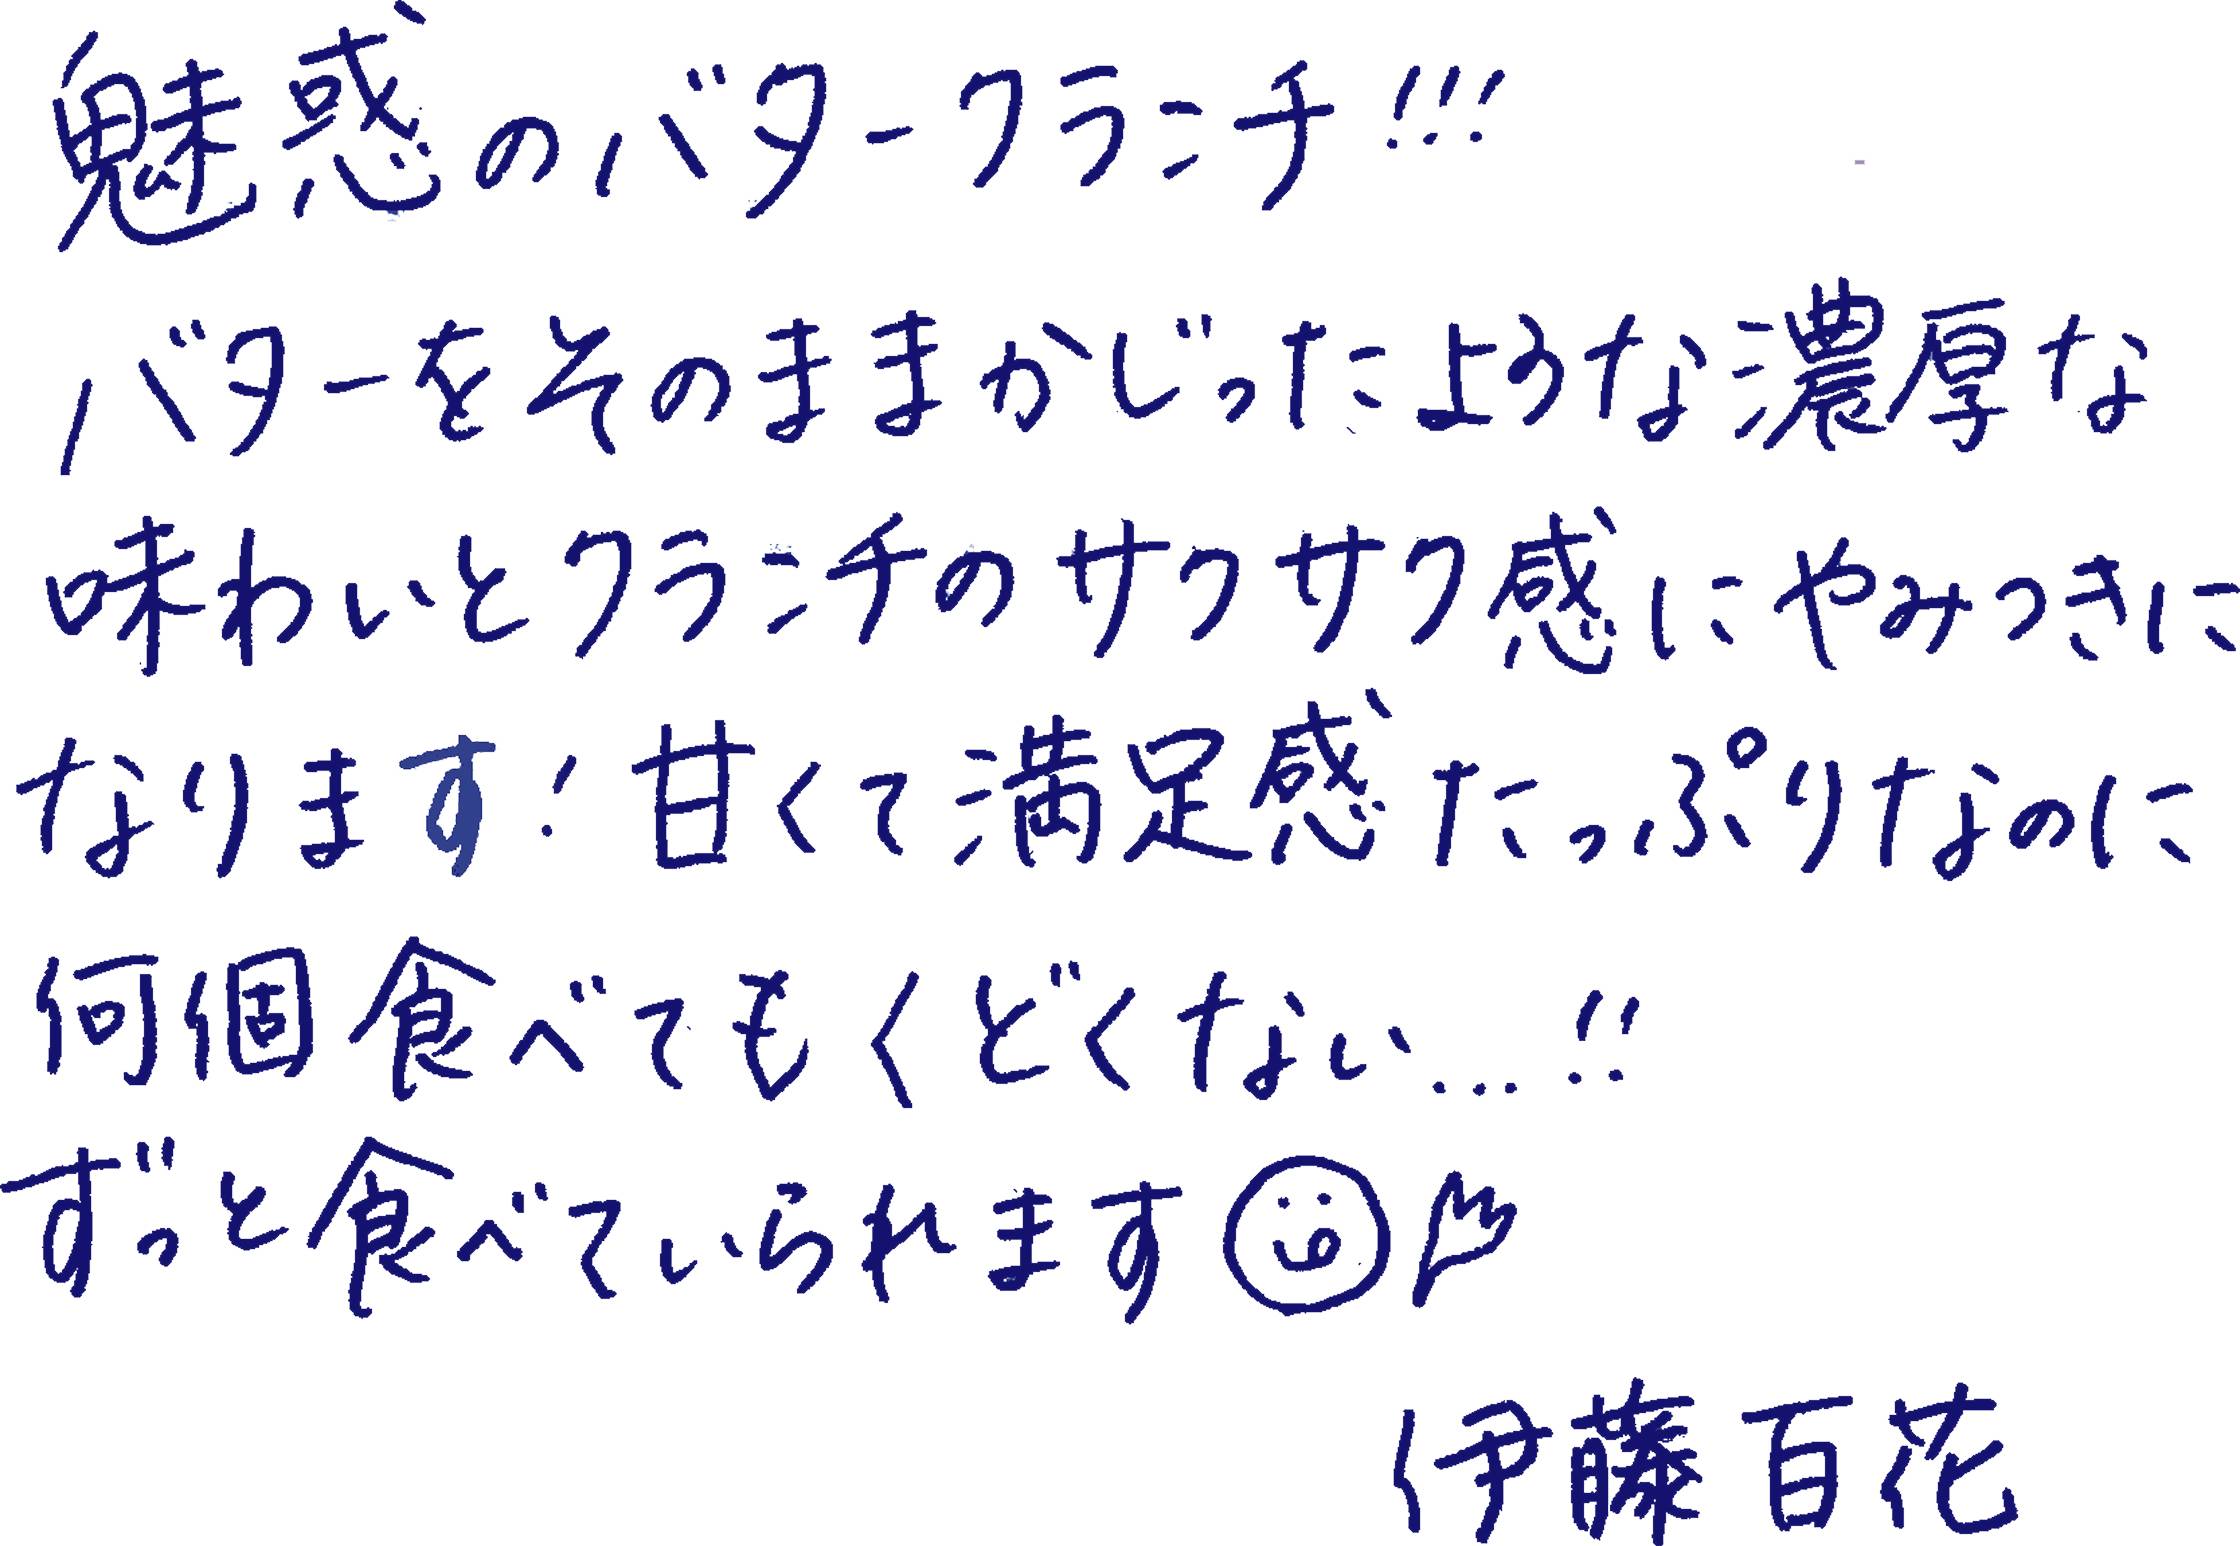 魅惑のバタークランチ!!!
バターをそのままかじったような濃厚な
味わいとクランチのサクサク感にやみつきに
なります!甘くて満足感たっぷりなのに
何個食べてもくどくない…!!
ずっと食べていられます
伊藤百花